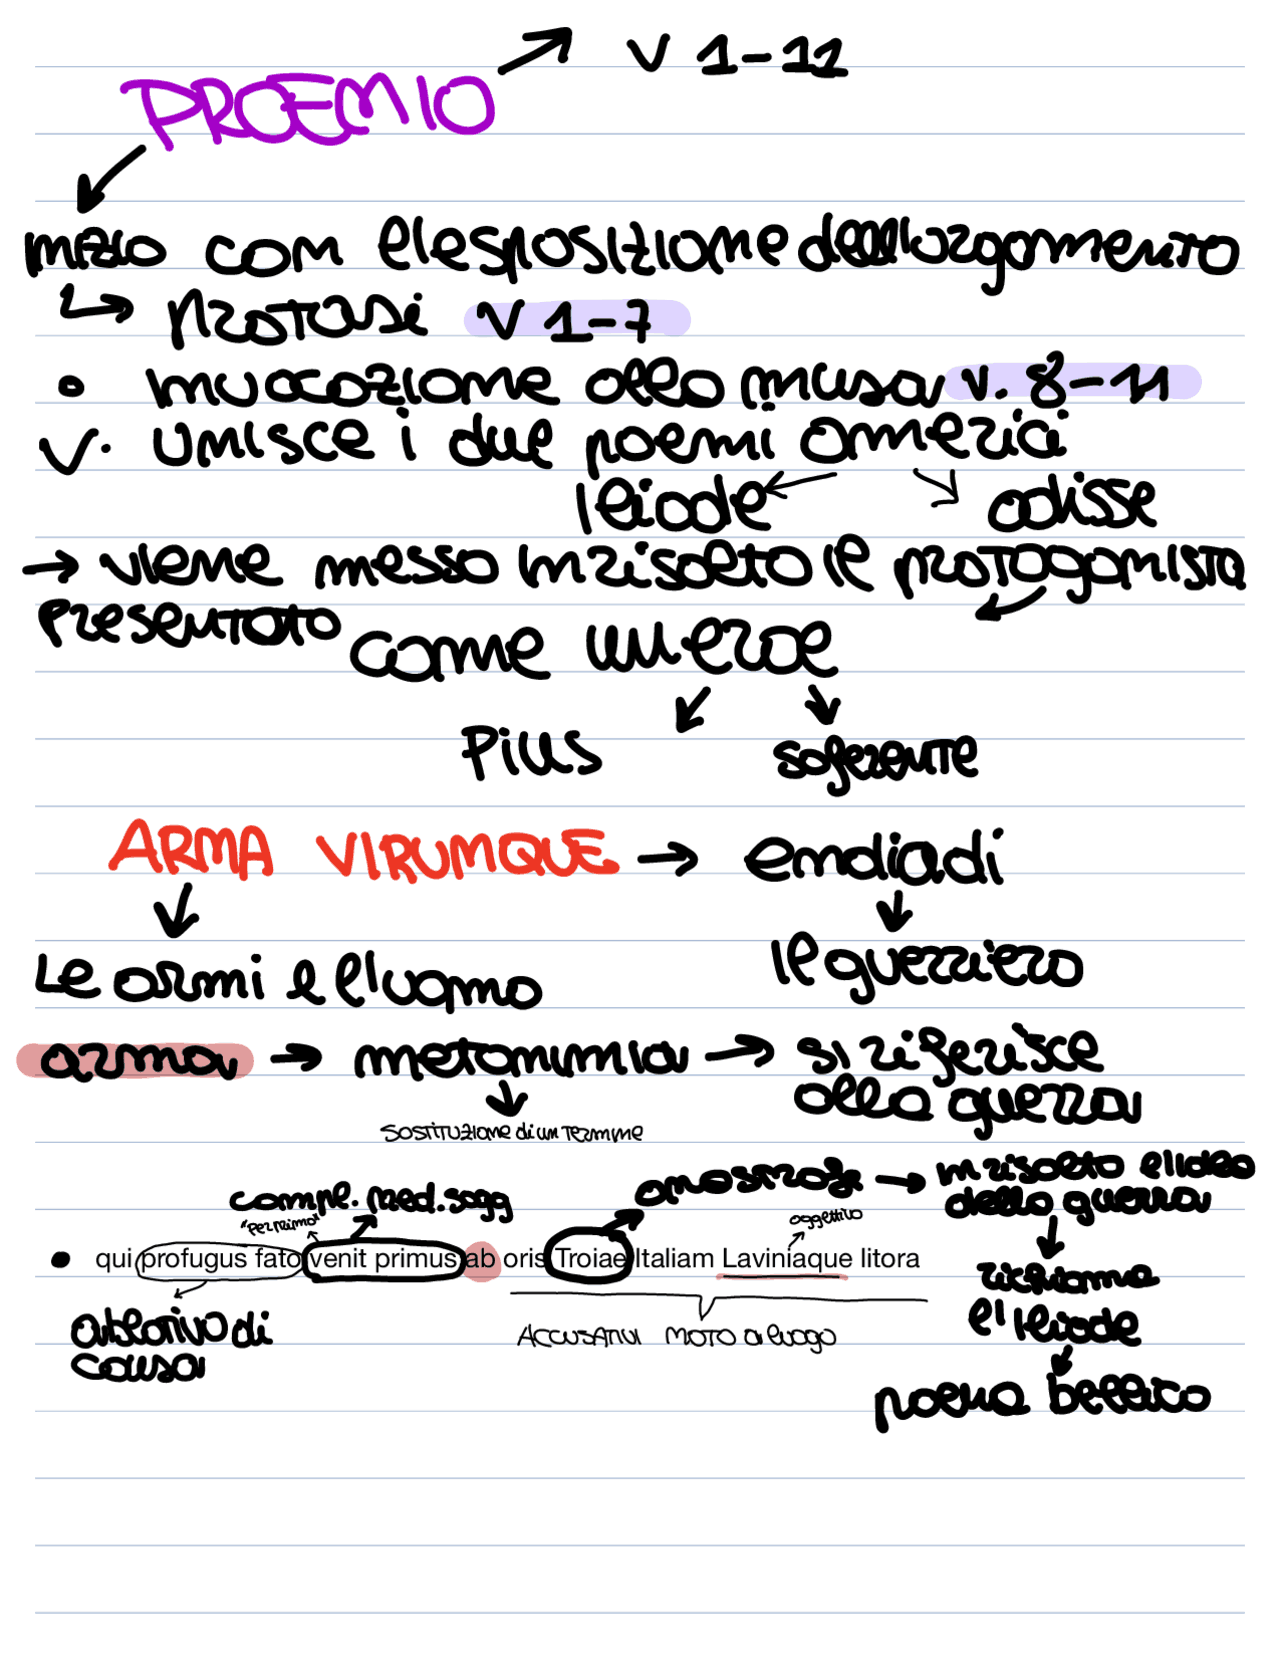 v 1-11
PROEMIO
inizio con l'esposizione dell'argomento
protasi v 1-7
• invocazione alla musa v. 8-11
V. unisce i due poemi omerici
Iliade odisse
→ viene messo in risalto il protagonista
presentato come un eroe
Pius soferente
ARMA VIRUMQUE → endiadi
Le armi e l'uomo il guerriero
arma → metonimia → si riferisce
alla guerra
sostituzione di un termine
in risalto l'idea
della guerra
compl. pred. sogg
"per primo"
oggettivo
• qui profugus fato venit primus ab oris Troiae Italiam Laviniaque litora
richiama
l'Iliade
ablativo di
causa
ACCUSATIVI MOTO a luogo
poema bellico